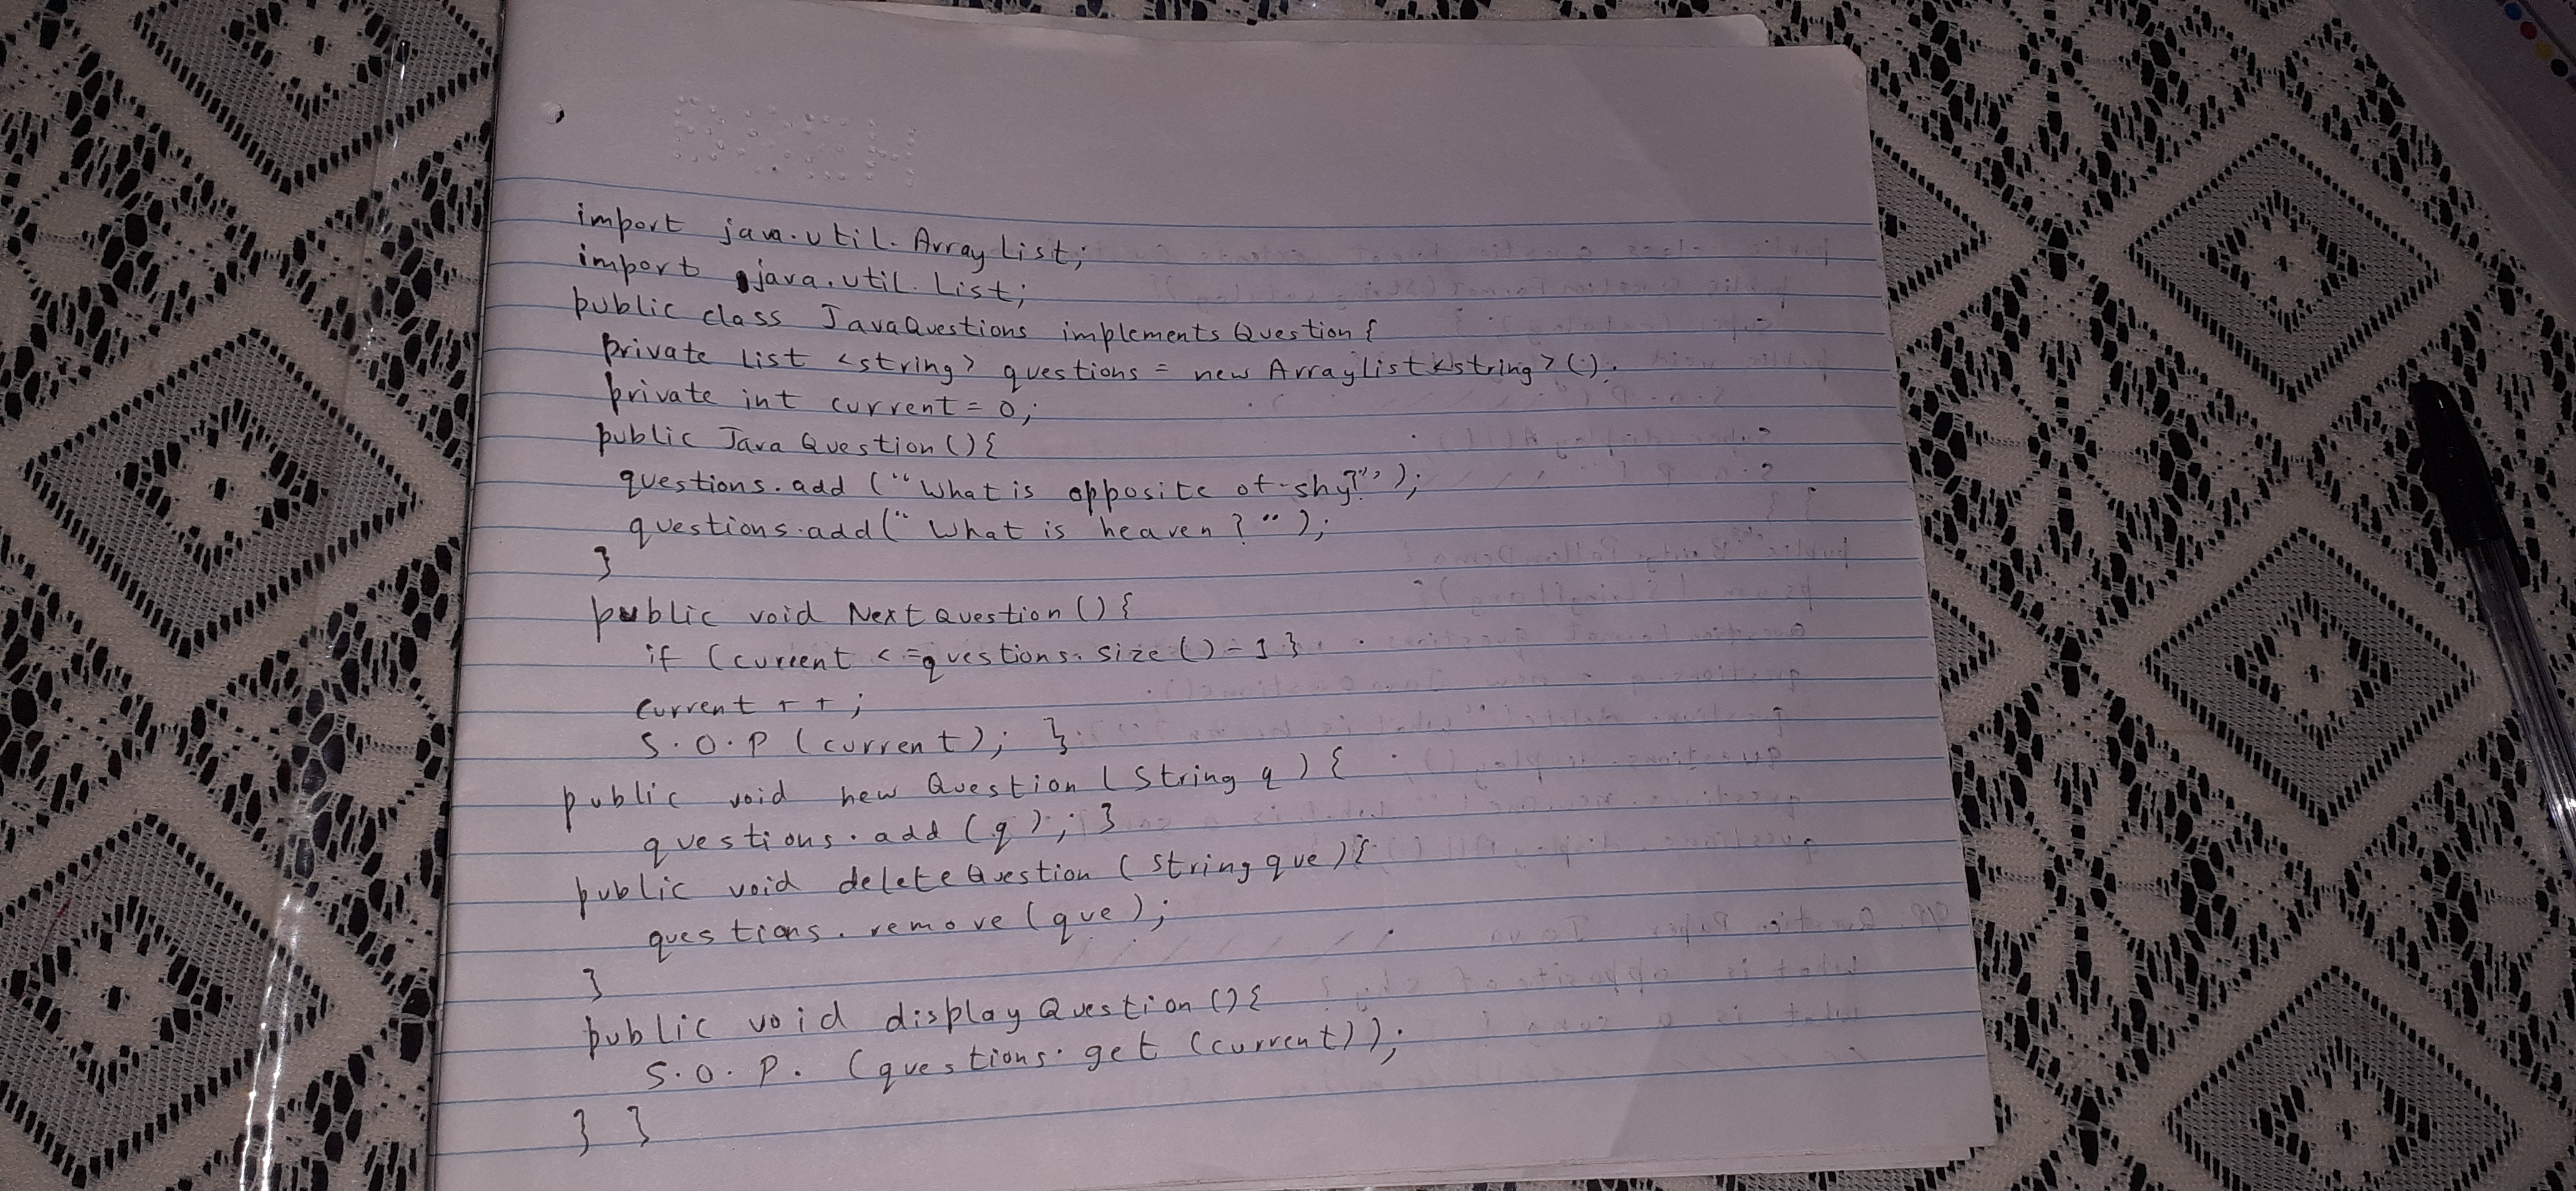 import java.util.ArrayList;
import java.util.List;
public class JavaQuestions implements Question{
private List <string> questions = new Arraylist<string>();
private int current = 0;
public Java Question(){
questions.add (“What is opposite of shy?”);
questions.add(“What is heaven?”);
}
public void Next Question(){
if (current <=questions.size()-1}
current ++;
S.O.P (current); }
public void new Question (String q) {
questions.add (q); }
public void delete Question (String que){
questions.remove (que);
}
public void display Question(){
S.O.P. (questions.get (current));
} }